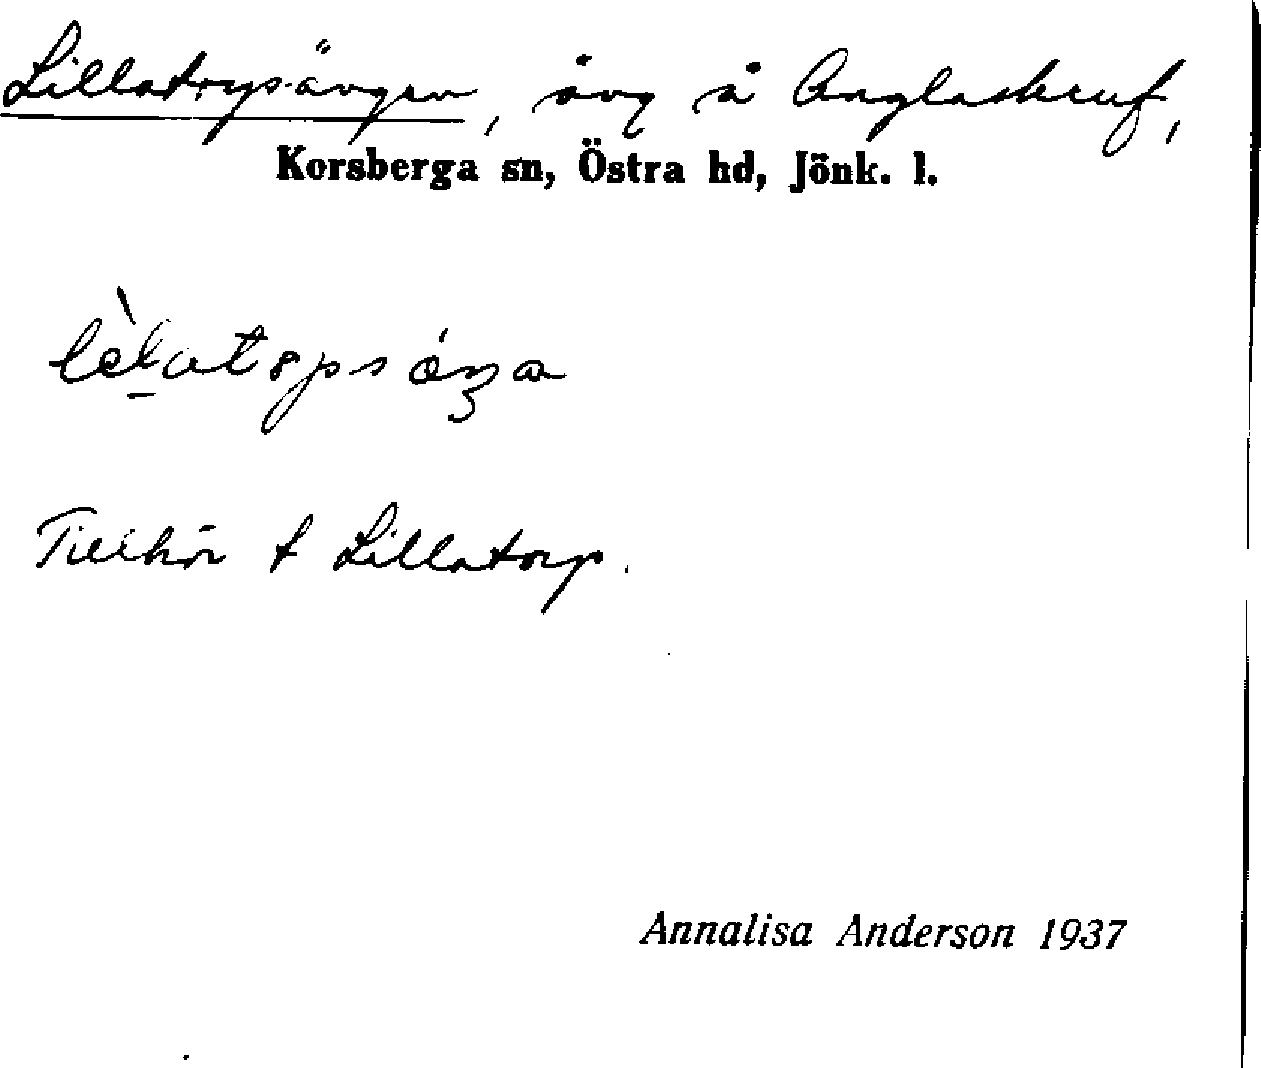 Lillatorpsängen, äng å Anglaskruf,
Korsberga sn, Östra hd, Jönk. l.
Tillhör t Lillatorp.
Annalisa Anderson 1937